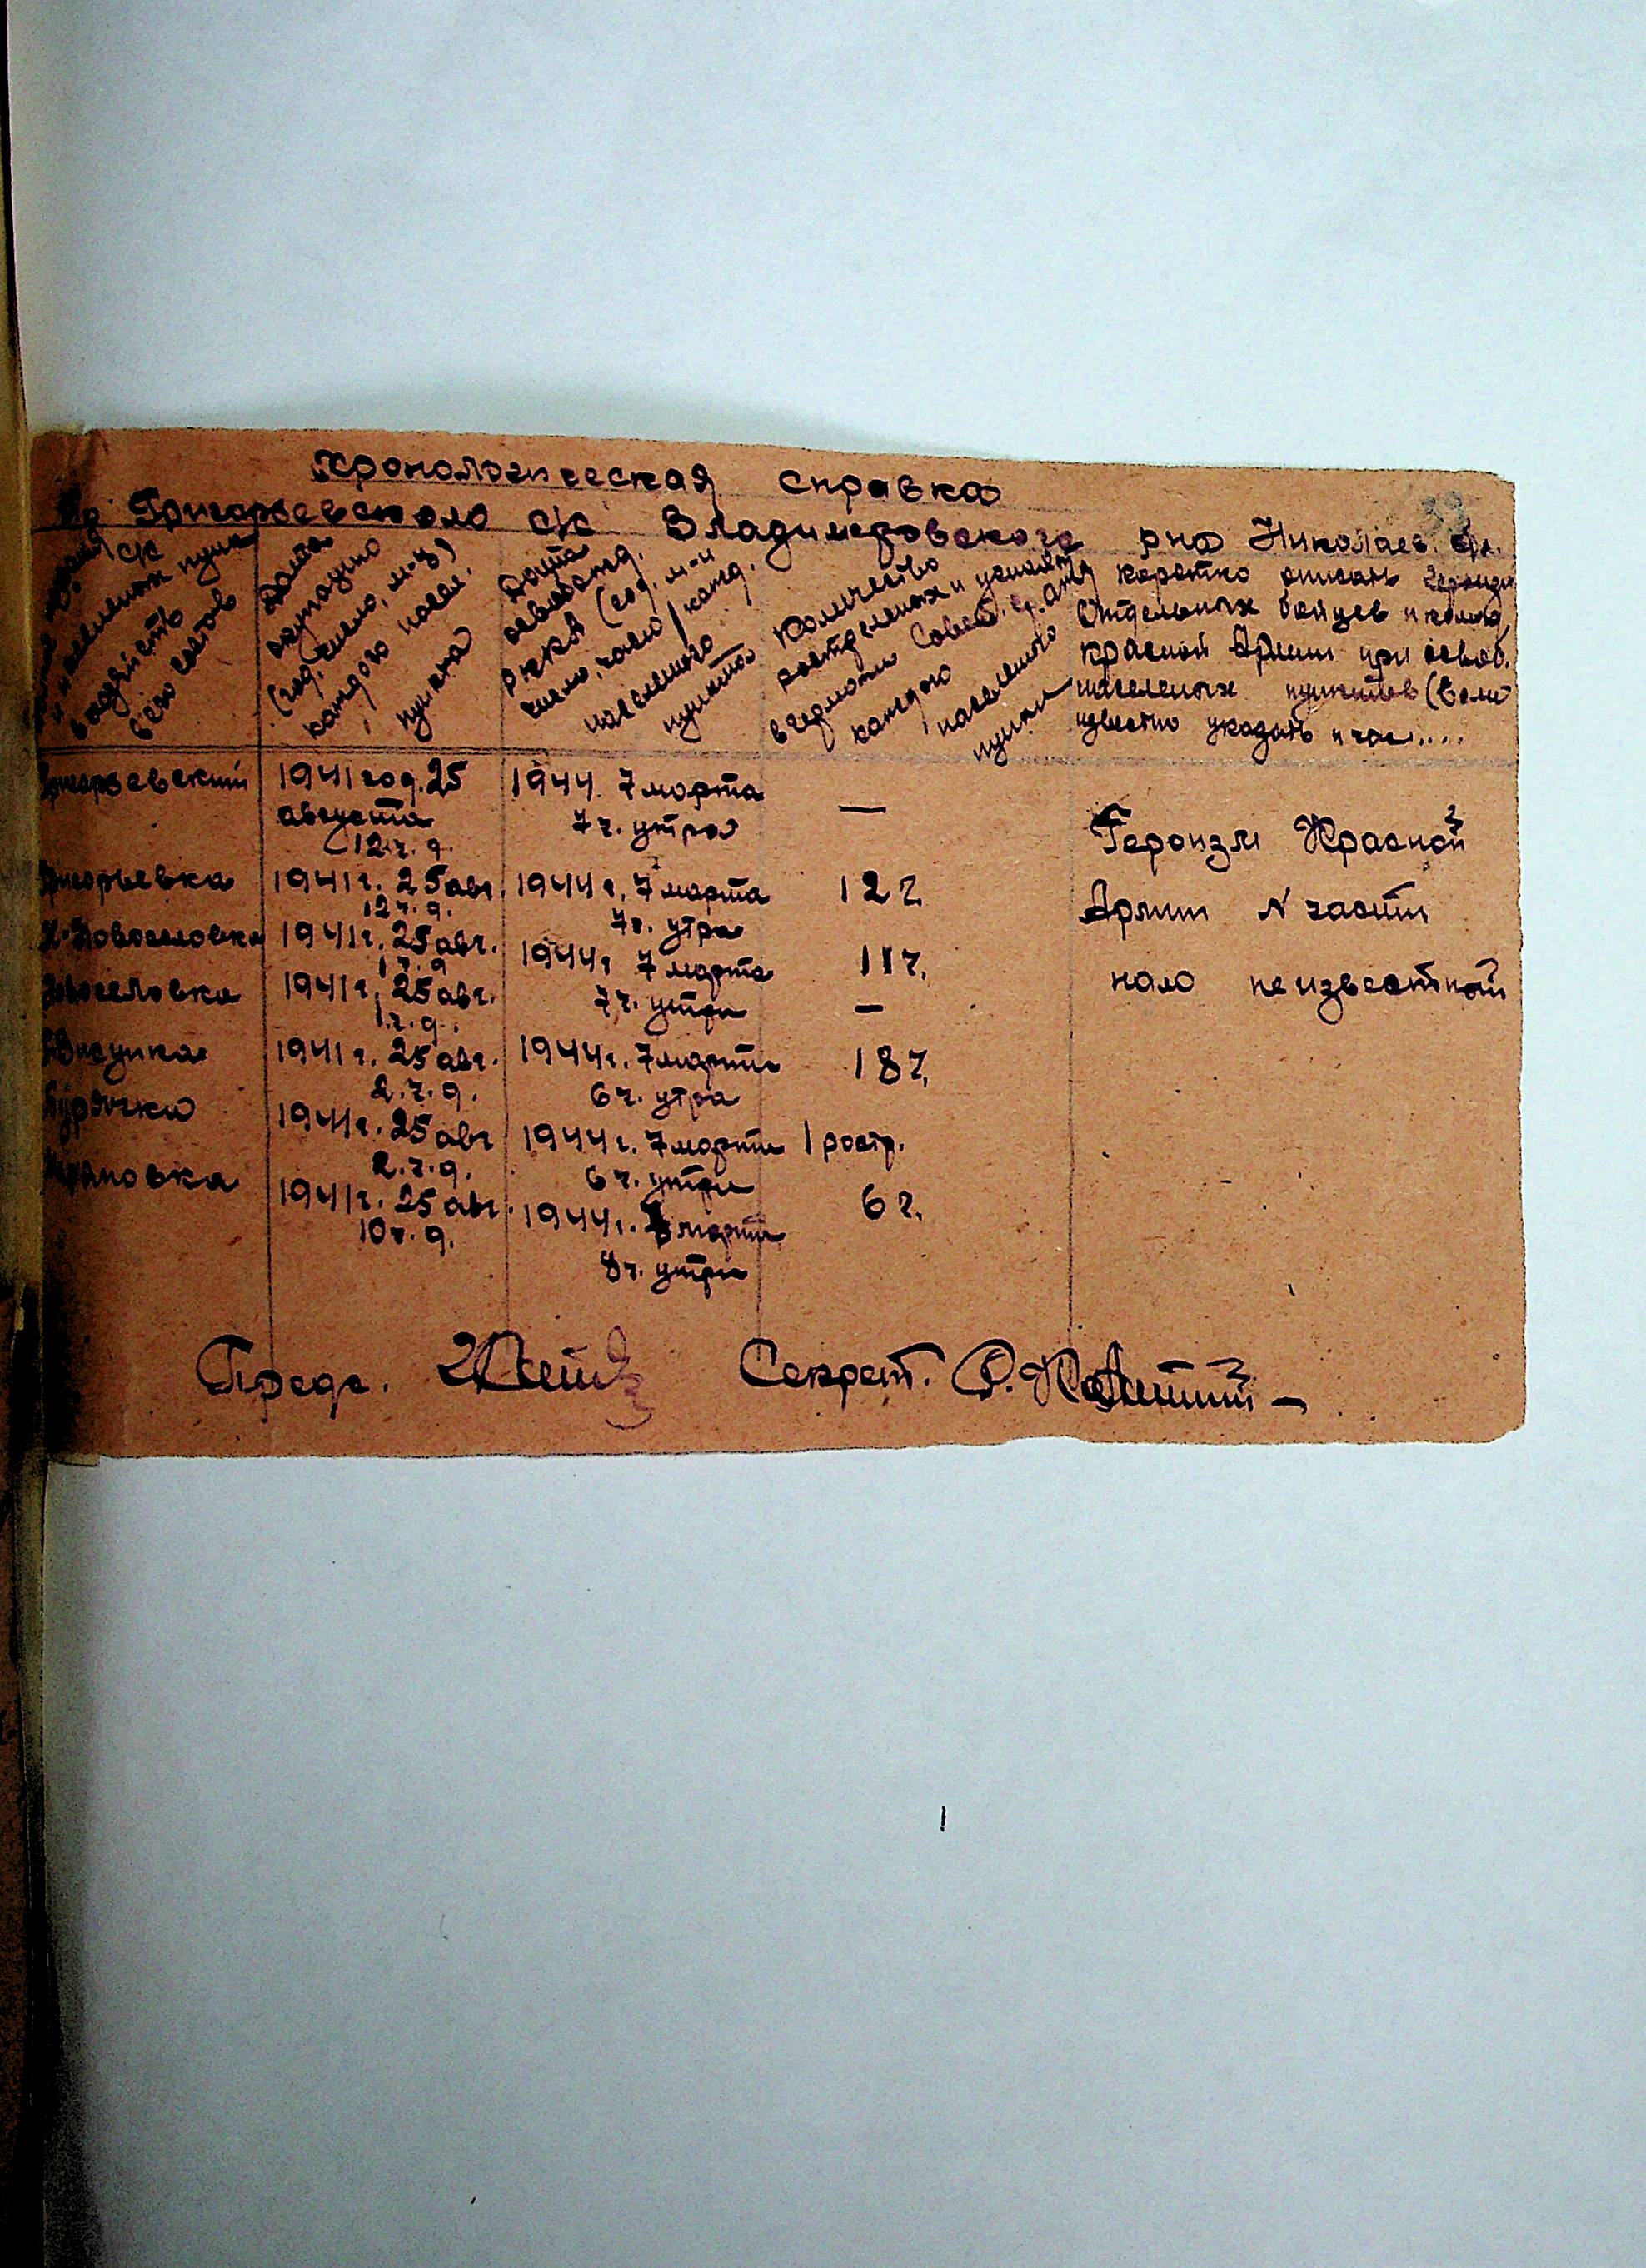 Хронологическая справка
По Григорьевскому с/с Владимировского р-на Николаев. обл.
с/с
и населенных пунк
входящ. в
сельсоветов
Дата
оккупации
(год, число, м-ц)
каждого насел.
пункта
Дата
освобожд.
РККА (год, м-ц
число, часы) кажд.
населенного
пункта
Количество
растрелянных и угнаных
в германию Совет. гр.
каждого
населенного
пункта
Коротко описать героизм
Отдельных бойцев и команд.
красной Армии при освоб.
населеных пунктов (Если
известно указать и час....
Григорьевский 1941 год. 25 августа 12 ч. д. 1944 7 марта 7 ч. утра —
Героизм Красной
Армии № части
нам неизвестной
Григорьевка 1941 г. 25 авг. 12 ч. д. 1944 г. 7 марта 7 ч. утра 12 ч.
Н-Новоселовка 1941 г. 25 авг. 1 ч. д 1944 г 7 марта 7 ч. утра 11 ч.
Новоселовка 1941 г. 25 авг. 1 ч. д. —
1941 г. 25 авг. 2 ч. д. 1944 г. 7 марта 6 ч. утра 18 ч.
1941 г. 25 авг 2 ч. д. 1944 г. 7 марта 6 ч. утра 1 растр.
1941 г. 25 авг. 10 ч. д. 1944 г. марта 8 ч. утра 6 ч.
Предс. Секрет.